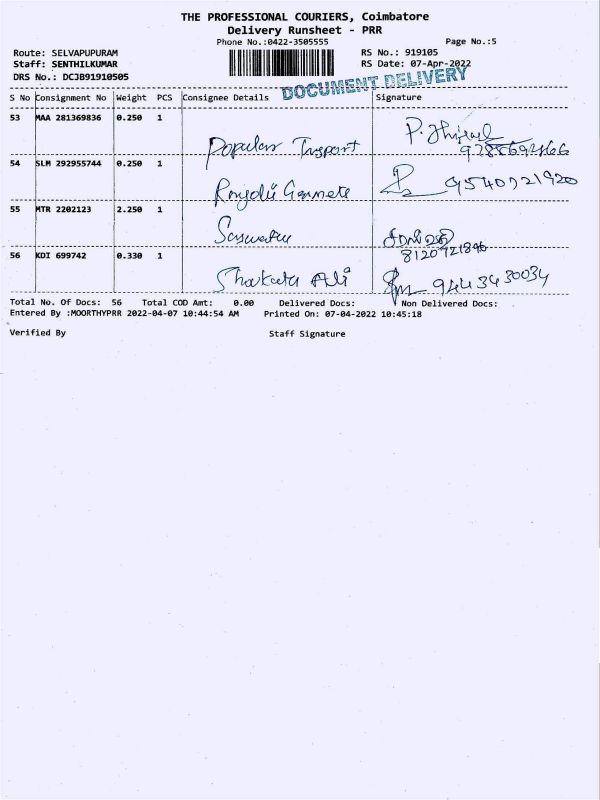 THE PROFESSIONAL COURIERS, Coimbatore
Delivery Runsheet - PRR
Phone No.:0422-3505555 Page No.:5
Route: SELVAPUPURAM RS No.: 919105
Staff: SENTHILKUMAR RS Date: 07-Apr-2022
DRS No.: DCJB91910505 DOCUMENT DELIVERY
S No Consignment No Weight PCS Consignee Details Signature
53 MAA 281369836 0.250 1
Popular
54 SLM 292955744 0.250 1
9540721920
55 MTR 2202123 2.250 1
8120721846
56 KDI 699742 0.330 1
Ali 9443430034
Total No. Of Docs: 56 Total COD Amt: 0.00 Delivered Docs: Non Delivered Docs:
Entered By :MOORTHYPRR 2022-04-07 10:44:54 AM Printed On: 07-04-2022 10:45:18
Verified By Staff Signature